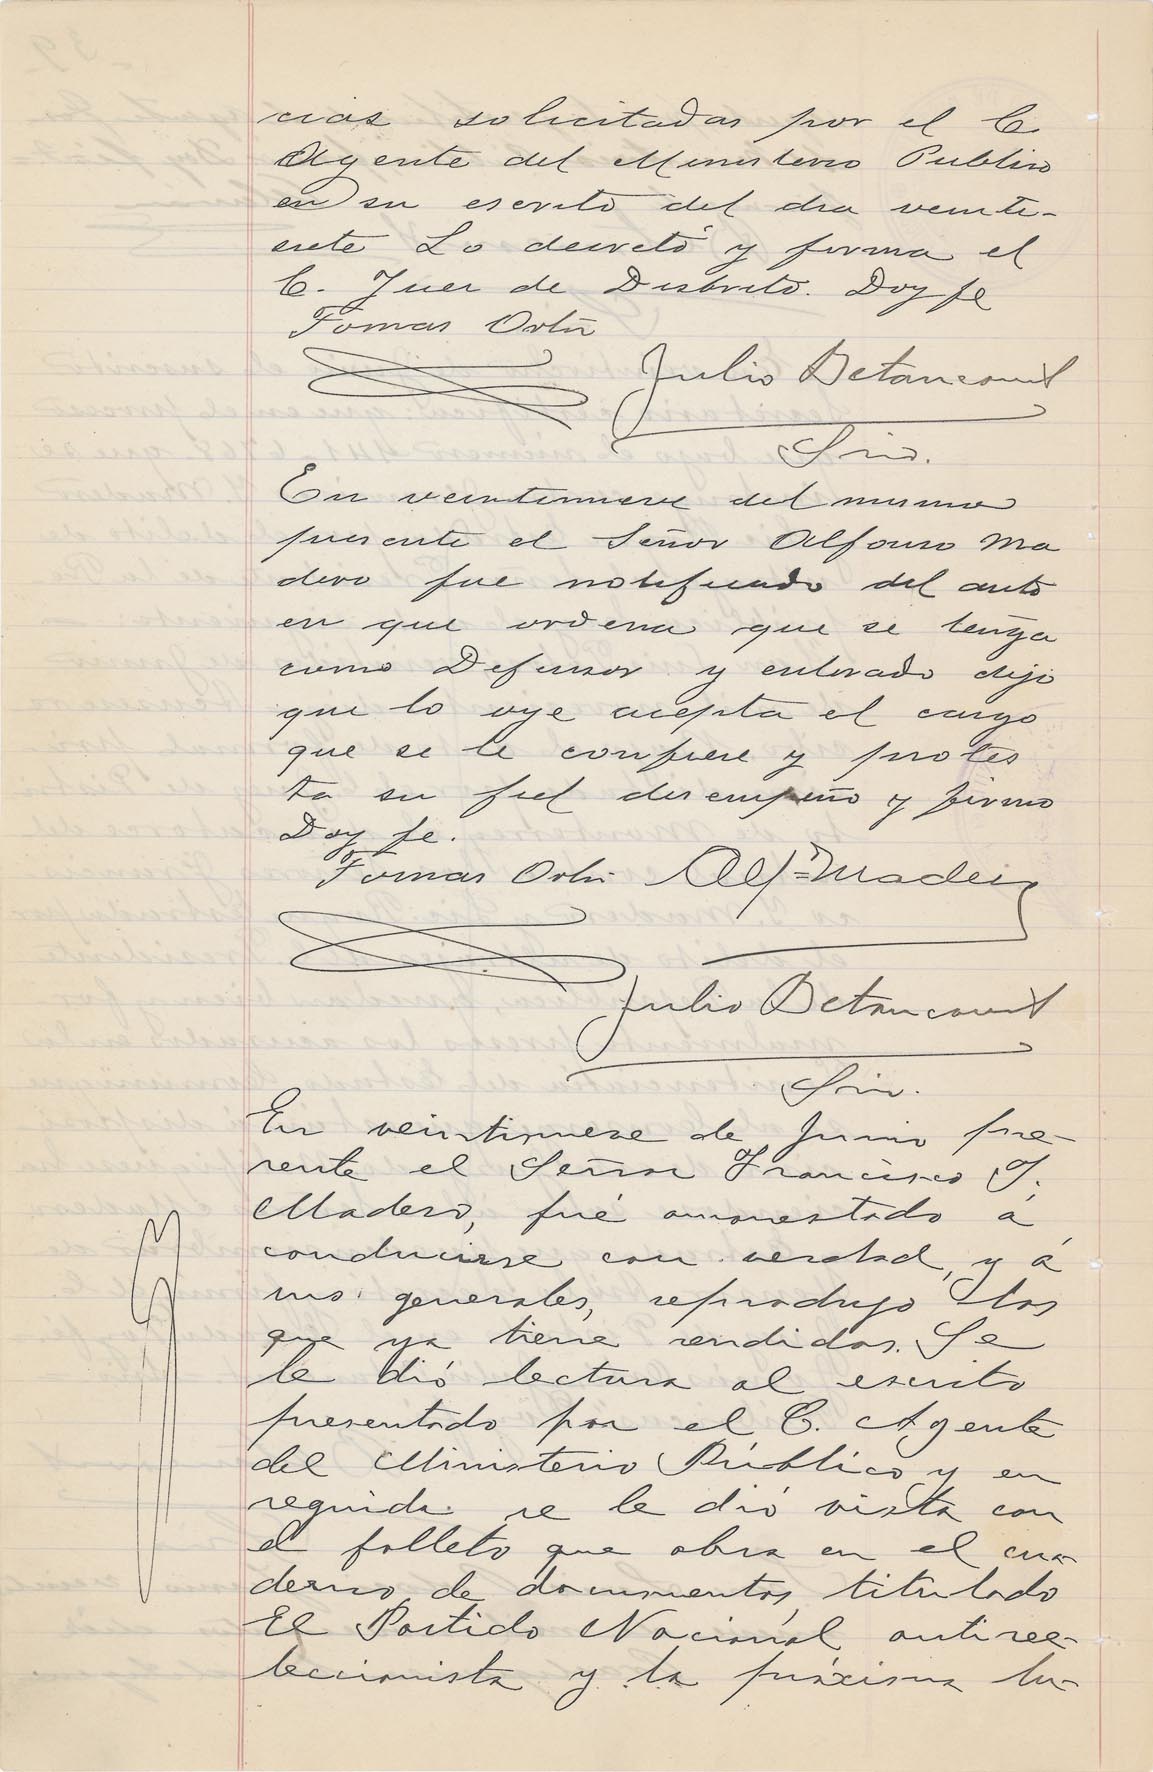 cias solicitadas por el C.
Agente del Ministerio Publico
en su escrito del dia veinti-
siete Lo decretó y firma el
C. Juez de Distrito. Doy fe
Tomas Ortiz
Julio Betancourt
Srio.
En veintinueve del mismo
presente el Señor Alfonso Ma
dero fue notificado del auto
en que ordena que se tenga
como Defensor y enterado dijo
que lo oye acepta el cargo
que se le confiere y protes
ta su fiel desempeño y firmo
Doy fe.
Tomas Ortiz Alf= Madero
Julio Betancourt
Srio.
En veintinueve de Junio pre-
sente el Señor Francisco I.
Madero, fué amonestado á
conducirse con verdad, y á
sus generales, reprodujo las
que ya tiene rendidas. Se
le dió lectura al escrito
presentado por el C. Agente
del Ministerio Público y en
seguida se le dió vista con
el folleto que obra en el cua-
derno de documentos, titulado
El Partido Nacional antiree-
leccionista y la próxima lu-